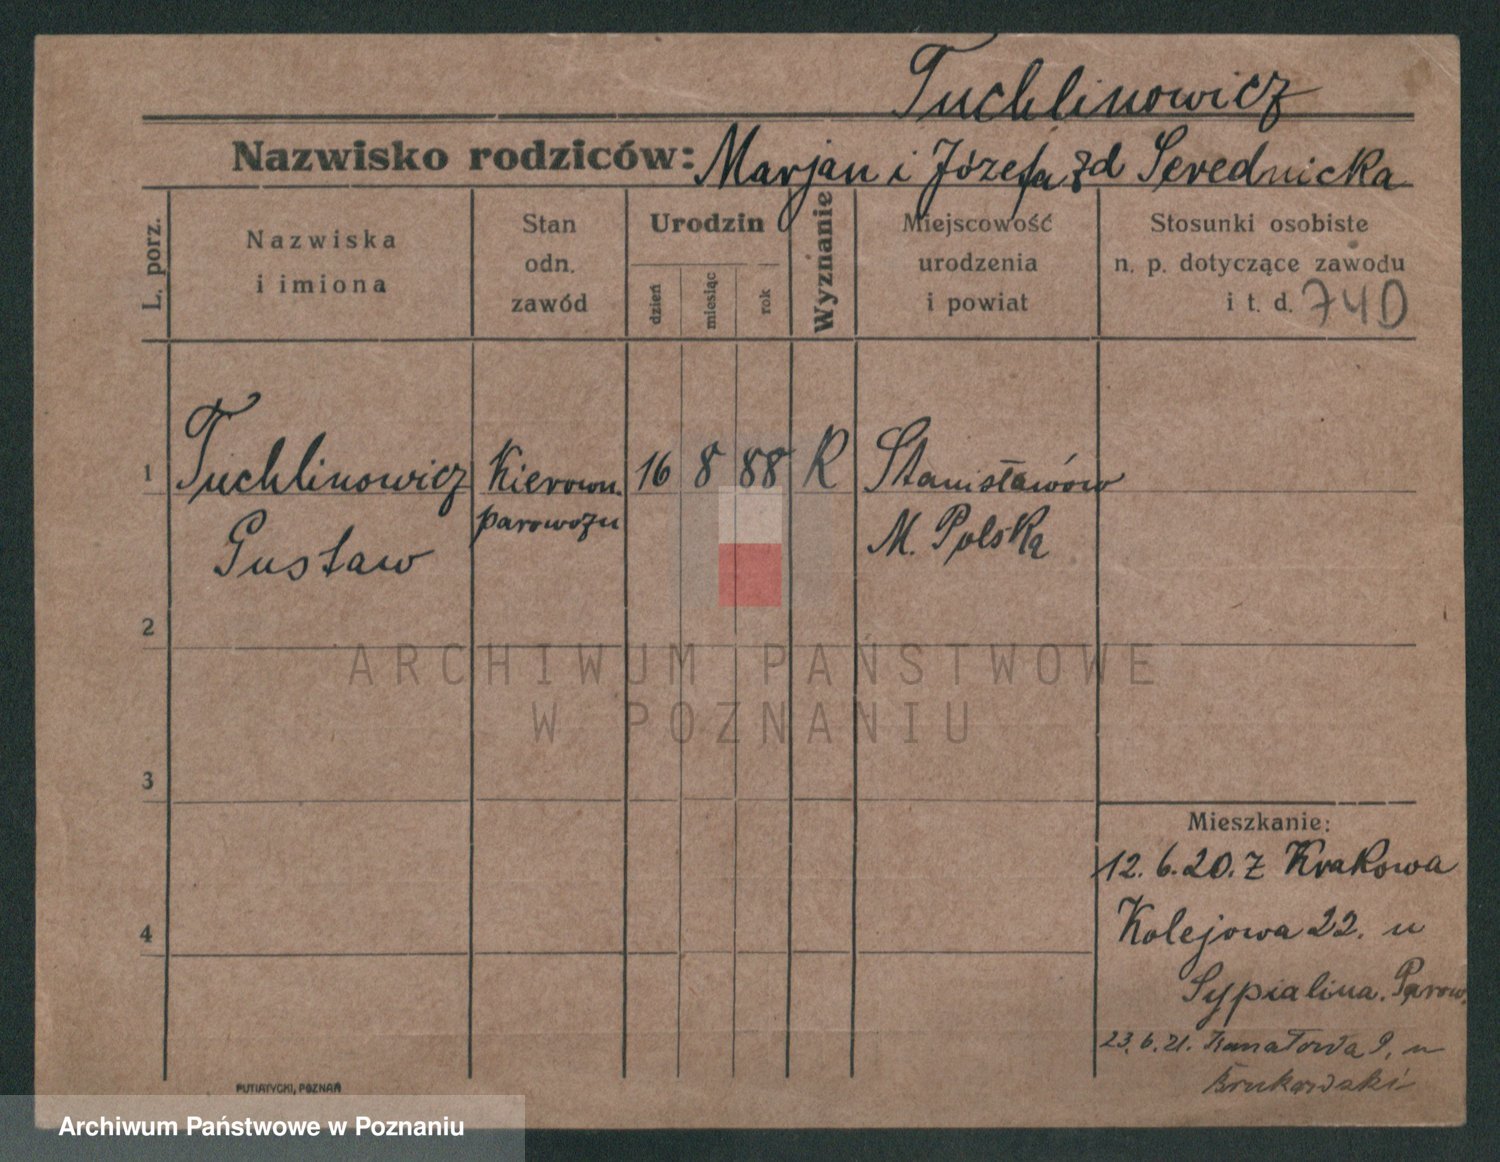 Tuchlinowicz
Nazwisko rodziców: Marjan i Józefa zd Serednicka
L. porz.
Nazwiska
i imiona
Stan
odn.
zawód
Urodzin
dzień
miesiąc
rok
Wyznanie
Miejscowość
urodzenia
i powiat
Stosunki osobiste
n. p. dotyczące zawodu
i t. d. 74D
1 Tuchlinowicz Kierown. 16 8 88 R Stanisławów
Gustaw parowozu M. Polska
2
3
4
Mieszkanie:
12.6.20. z Krakowa
Kolejowa 22. u
Sypialina. Parow.
23.6.21. Kanałowa 9, u
PUTIATYCKI, POZNAŃ
ARCHIWUM PAŃSTWOWE
W POZNANIU
Archiwum Państwowe w Poznaniu